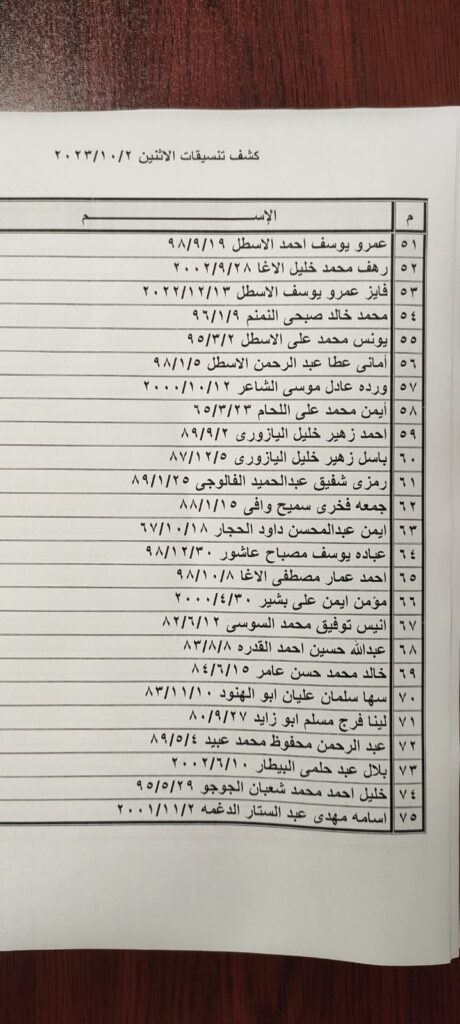 كشف تنسيقات الاثنين ٢٠٢٣/١٠/٢
م الإســـــــــــــــــم
٥١ عمرو يوسف احمد الاسطل ٩٨/٩/١٩
٥٢ رهف محمد خليل الاغا ٢٠٠٢/٩/٢٨
٥٣ فايز عمرو يوسف الاسطل ٢٠٢٢/١٢/١٣
٥٤ محمد خالد صبحى النمنم ٩٦/١/٩
٥٥ يونس محمد على الاسطل ٩٥/٣/٢
٥٦ أمانى عطا عبد الرحمن الاسطل ٩٨/١/٥
٥٧ ورده عادل موسى الشاعر ٢٠٠٠/١٠/١٢
٥٨ أيمن محمد على اللحام ٦٥/٣/٢٣
٥٩ احمد زهير خليل اليازورى ٨٩/٩/٢
٦٠ باسل زهير خليل اليازورى ٨٧/١٢/٥
٦١ رمزى شفيق عبدالحميد الفالوجى ٨٩/١/٢٥
٦٢ جمعه فخرى سميح وافى ٨٨/١/١٥
٦٣ ايمن عبدالمحسن داود الحجار ٦٧/١٠/١٨
٦٤ عباده يوسف مصباح عاشور ٩٨/١٢/٣٠
٦٥ احمد عمار مصطفى الاغا ٩٨/١٠/٨
٦٦ مؤمن ايمن على بشير ٢٠٠٠/٤/٣٠
٦٧ انيس توفيق محمد السوسى ٨٢/٦/١٢
٦٨ عبدالله حسين احمد القدره ٨٣/٨/٨
٦٩ خالد محمد حسن عامر ٨٤/٦/١٥
٧٠ سها سلمان عليان ابو الهنود ٨٣/١١/١٠
٧١ لينا فرج مسلم ابو زايد ٨٠/٩/٢٧
٧٢ عبد الرحمن محفوظ محمد عبيد ٨٩/٥/٤
٧٣ بلال عبد حلمى البيطار ٢٠٠٢/٦/١٠
٧٤ خليل احمد محمد شعبان الجوجو ٩٥/٥/٢٩
٧٥ اسامه مهدى عبد الستار الدغمه ٢٠٠١/١١/٢